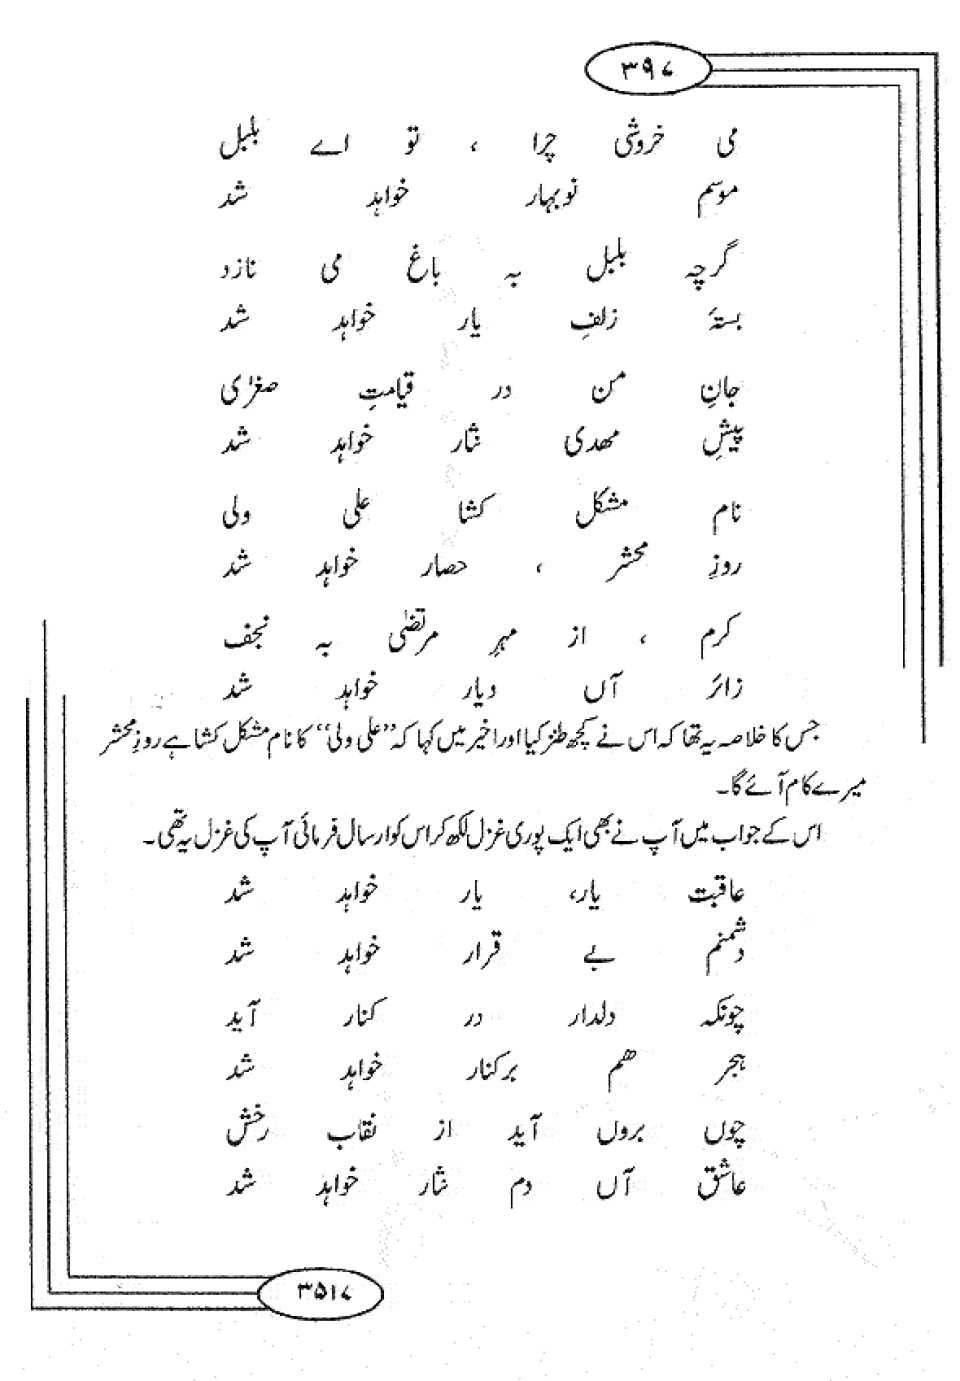 ۳۹۷
می خروشی چرا ، تو اے بلبل
موسم نوبہار خواہد شد
گرچہ بلبل بہ باغ می نازد
بستۂ زلفِ یار خواہد شد
جانِ من در قیامتِ صغرٰی
پیشِ مھدی نثار خواہد شد
نام مشکل کشا علی ولی
روزِ محشر ، حصار خواہد شد
کرم ، از مہرِ مرتضٰی بہ نجف
زائر آں دیار خواہد شد
جس کا خلاصہ یہ تھا کہ اس نے کچھ طنز کیا اور اخیر میں کہا کہ ’’علی ولی‘‘ کا نام مشکل کشا ہے روزِ محشر
میرے کام آئے گا۔
اس کے جواب میں آپ نے بھی ایک پوری غزل لکھ کر اس کو ارسال فرمائی آپ کی غزل یہ تھی۔
عاقبت یار، یار خواہد شد
دشمنم بے قرار خواہد شد
چونکہ دلدار در کنار آید
ہجر ھم برکنار خواہد شد
چوں بروں آید از نقاب رخش
عاشق آں دم نثار خواہد شد
۳۵۱۷